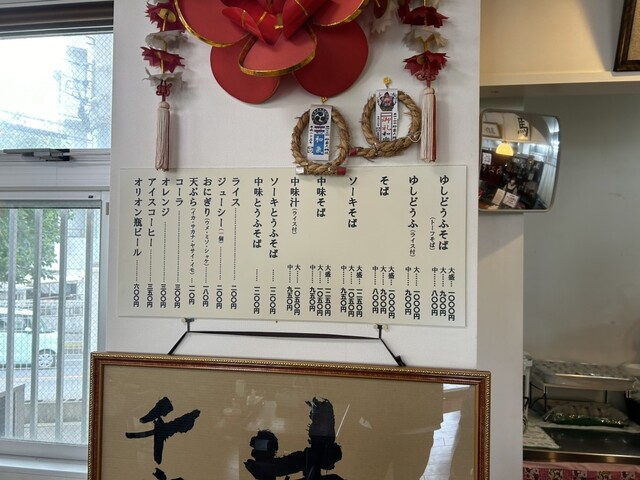 ゆしどうふそば
(トーフそば)
大盛…一〇〇〇円
大……九〇〇円
中……八〇〇円
ゆしどうふ(ライス付)
大……一〇〇〇円
中……九〇〇円
そば
大盛…一〇〇〇円
大……九〇〇円
中……八〇〇円
ソーキそば
大盛…一二五〇円
大……一〇五〇円
中……九五〇円
中味そば
大……一〇五〇円
中……九五〇円
中味汁(ライス付)
大……一〇五〇円
中……九五〇円
ソーキとうふそば……一二〇〇円
中味とうふそば……一二〇〇円
ライス……二〇〇円
ジューシー(一個)……二〇〇円
おにぎり(ウメ・ミソ・シャケ)…一八〇円
天ぷら(イカ・サカナ・ヤサイ・イモ)…一〇〇円
コーラ……三〇〇円
オレンジ……三〇〇円
アイスコーヒー……三五〇円
オリオン瓶ビール……六〇〇円
千